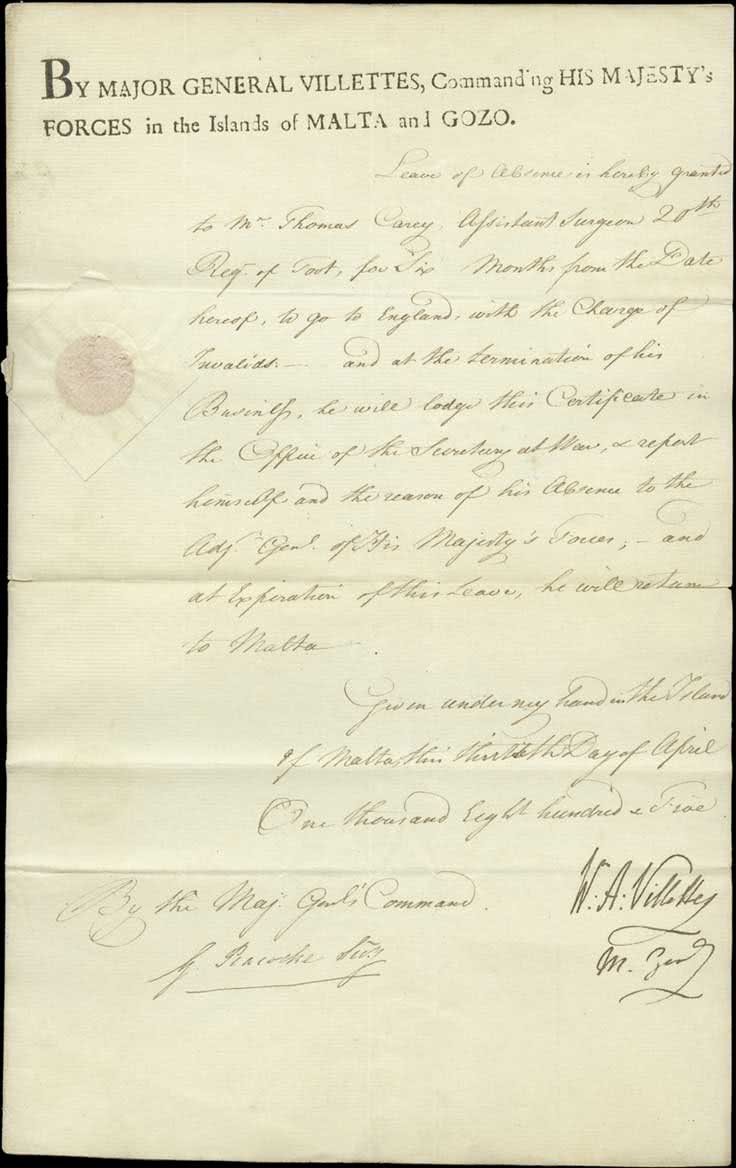 BY MAJOR GENERAL VILLETTES, Commanding HIS MAJESTY's
FORCES in the Islands of MALTA and GOZO.
Leave of Absence is hereby granted
to Mr. Thomas Carey, Assistant Surgeon 20th
Reg. of Foot, for Six Months from the Date
hereof, to go to England, with the Charge of
Invalids. — and at the termination of his
Business, he will lodge this Certificate in
the Office of the Secretary at War, & report
himself and the reason of his Absence to the
Adj. Genl. of His Majesty's Forces; — and
at Expiration of this Leave, he will return
to Malta
Given under my hand in the Island
of Malta, this Day of April
One thousand Eight hundred & Five
By the Maj. Genl's Command.
W. A. Villettes
M. Genl
Peacocke Secy